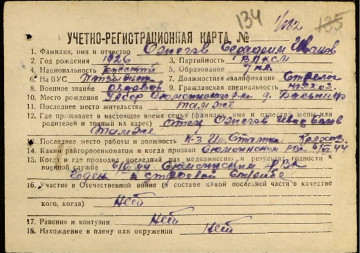 134 185
УЧЕТНО-РЕГИСТРАЦИОННАЯ КАРТА №
1. Фамилия, имя и отчество Ожегов Серафим Иванов
2. Год рождения 1926 3. Партийность ВЛКСМ
4. Национальность русский 5. Образование 7 кл
6. На ВУС 7. Должностная квалификация Стрелок
8. Военное звание рядовой 9. Гражданская специальность
10. Место рождения д.
11. Последнее место жительства там же
12. Где проживает в настоящее время семья (фамилия, имя и отчество жены или
родителей и полный их адрес) Отец Ожегов Иван
там же
13. Последнее место работы и должность к-з Им. Сталина Колхоз.
14. Каким райвоенкоматом и когда призван РВК 44
15. Когда и где проходил последний раз медкомиссию и результаты годности к
военной службе 44 РВК
Годен к строевой службе
16. Участие в Отечественной войне (в составе какой последней части в качестве
кого, когда) Нет
17. Ранения и контузии Нет
18. Нахождение в плену или окружении Нет